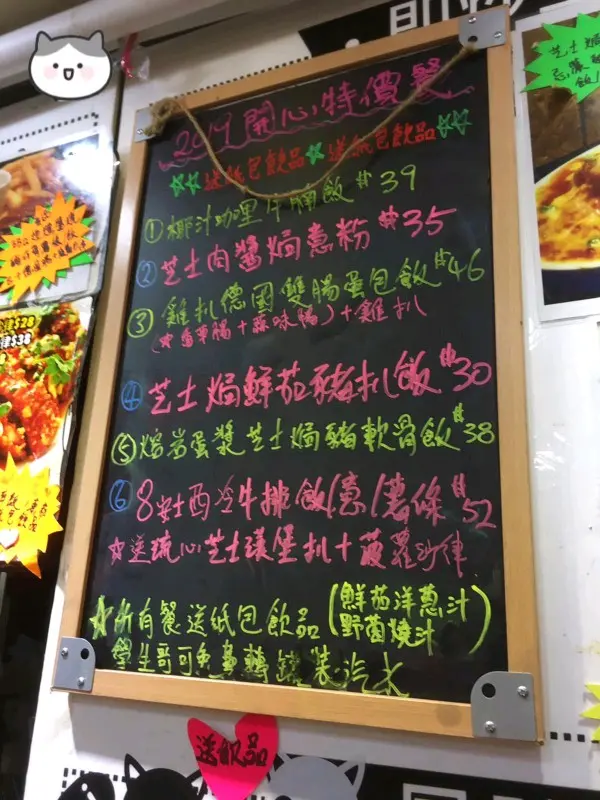 2019 開心特價餐
送紙包飲品 送紙包飲品
① 椰汁咖哩牛腩飯 #39
② 芝士肉醬焗意粉 #35
③ 雞扒德國雙腸蛋包飯 #46
(香草腸+蒜味腸)+雞扒
④ 芝士焗鮮茄豬扒飯 #30
⑤ 熔岩蛋漿芝士焗豬軟骨飯 #38
⑥ 8安士西冷牛排飯/意/薯條 #52
送流心芝士漢堡扒+菠蘿沙律
所有餐送紙包飲品 (鮮茄洋蔥汁
野菌燒汁)
學生哥可免費轉罐裝汽水
送飲品
芝士焗
飯
$28
$38